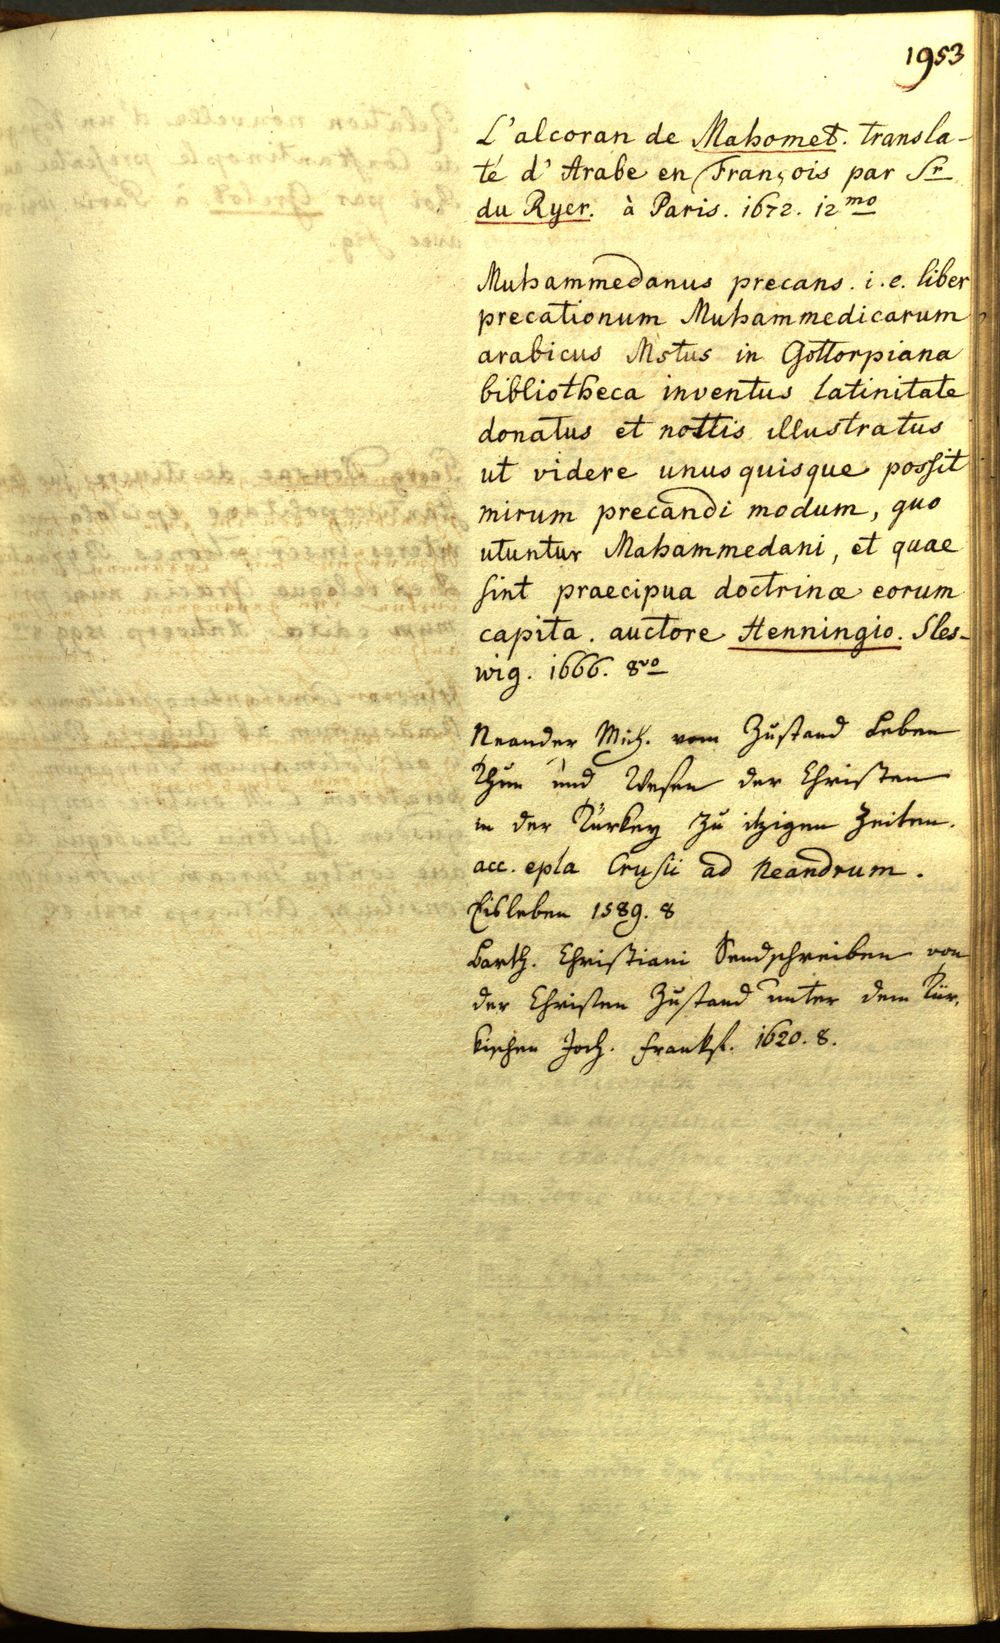 1953
L'alcoran de Mahomet. transla-
té d'Arabe en François par Sr
du Ryer. à Paris. 1672. 12mo
Muhammedanus precans. i.e. liber
precationum Muhammedicarum
arabicus Mstus in Gottorpiana
bibliotheca inventus latinitate
donatus et nottis illustratus
ut videre unusquisque possit
mirum precandi modum, quo
utuntur Mahammedani, et quae
sint praecipua doctrinæ eorum
capita. auctore Henningio. Sles-
wig. 1666. 8vo
Neander Mich. vom Zustand Leben
Thun und Wesen der Christen
in der Türkey zu itzigen Zeiten.
acc. epla Crusii ad Neandrum.
Eisleben 1589. 8
Barth. Christiani Sendschreiben von
der Christen Zustand unter dem Tür,
kischen Joch. Frankf. 1620. 8.